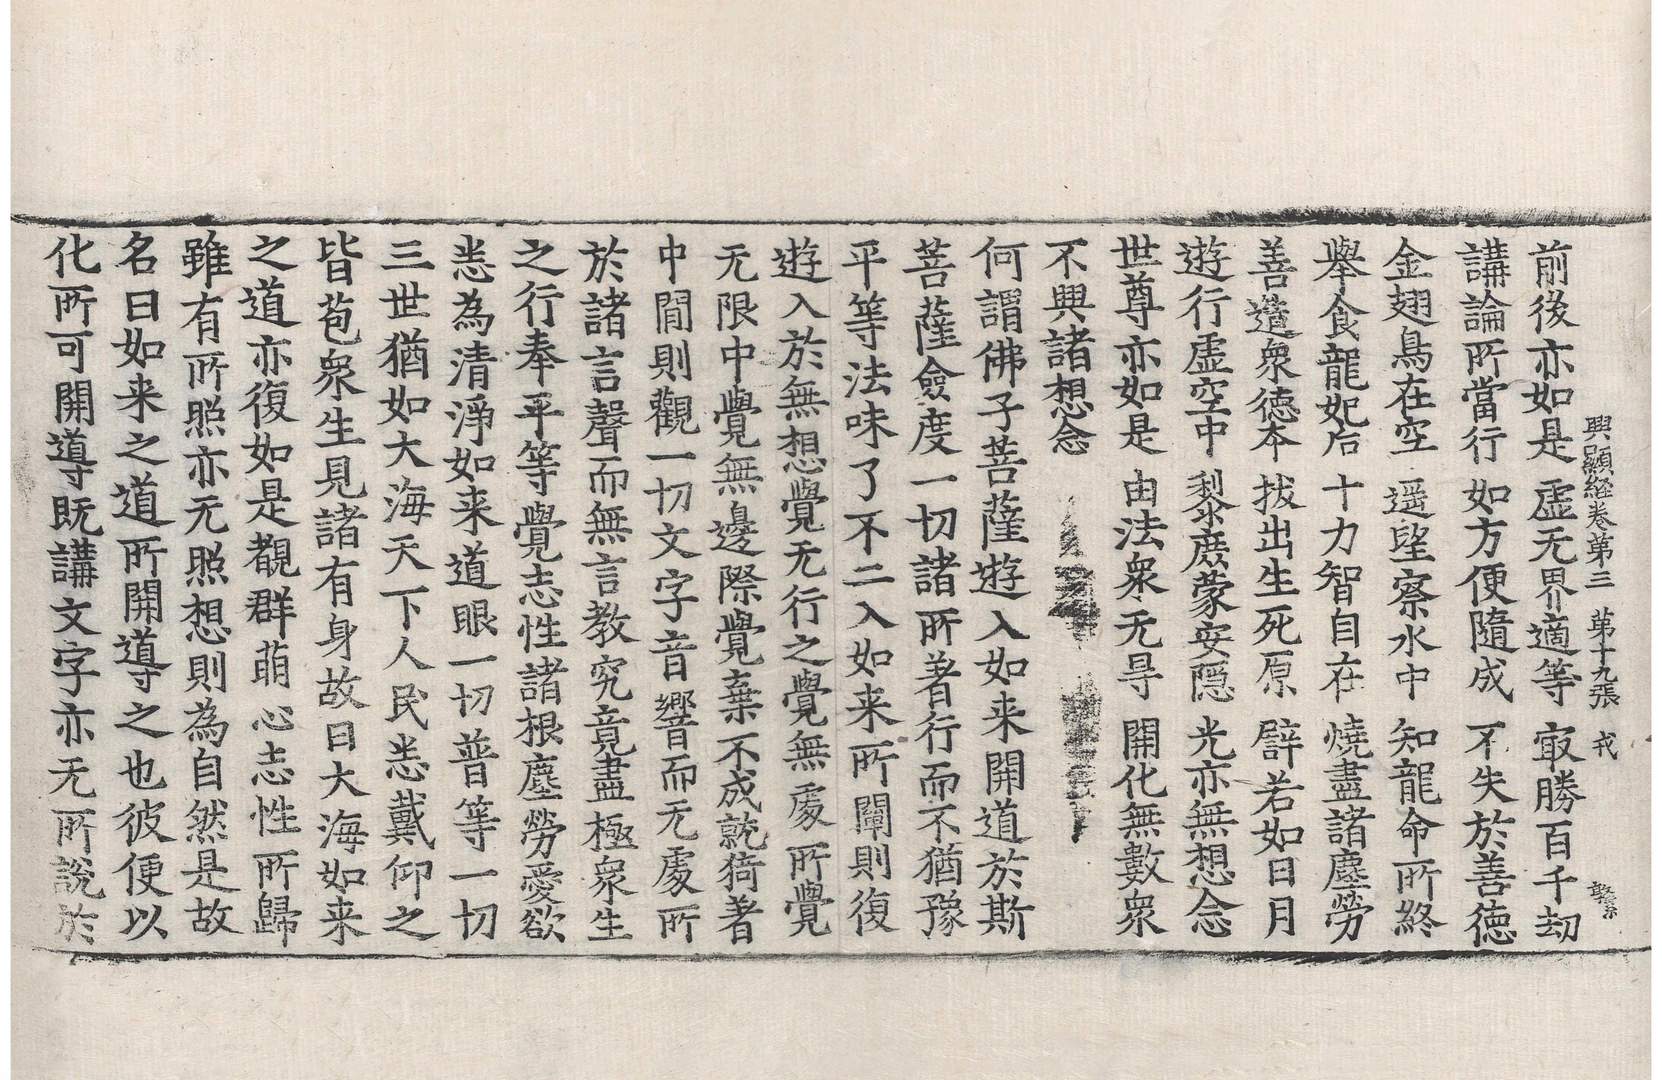 興顯経卷第三　第十九張　戎
前後亦如是　虛无界適等　㝡勝百千劫
講論所當行　如方便隨成　不失於善徳
金翅鳥在空　遥望察水中　知龍命所終
舉食龍妃后　十力智自在　燒盡諸塵勞
善造衆徳本　拔出生死原　譬若如日月
遊行虛空中　黎庶蒙安隱　光亦無想念
世尊亦如是　由法衆无㝵　開化無數衆
不興諸想念
何謂佛子菩薩遊入如来開道於斯
菩薩僉度一切諸所著行而不猶豫
平等法味了不二入如来所闡則復
遊入於無想覺无行之覺無處所覺
无限中覺無邊際覺棄不成就猗著
中間則觀一切文字音響而无處所
於諸言聲而無言教究竟盡極衆生
之行奉平等覺志性諸根塵勞愛欲
恚為清淨如来道眼一切普等一切
三世猶如大海天下人民悉戴仰之
皆苞衆生見諸有身故曰大海如来
之道亦復如是覩群萌心志性所歸
雖有所照亦无照想則為自然是故
名曰如来之道所開導之也彼便以
化所可開導既講文字亦无所說於